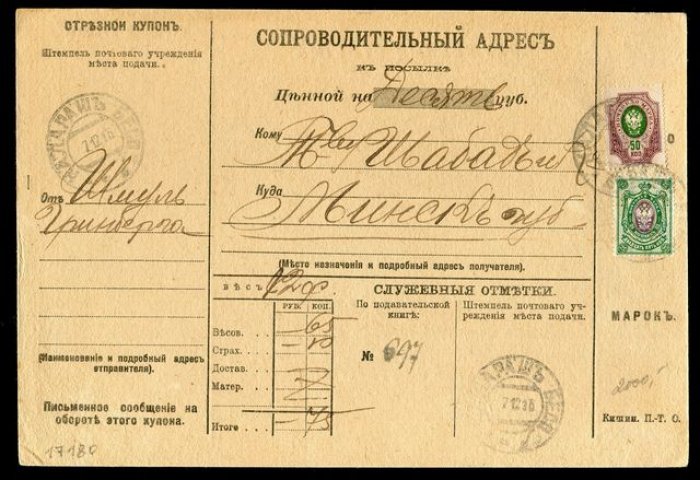 ОТРѢЗНОЙ КУПОНЪ.
Штемпель почтоваго учрежденія
мѣста подачи.
Отъ Шмуль
Гринберга
(Наименованіе и подробный адресъ
отправителя).
Письменное сообщеніе на
оборотѣ этого купона.
17180
СОПРОВОДИТЕЛЬНЫЙ АДРЕСЪ
КЪ ПОСЫЛКѢ
Цѣнной на Десять руб.
Кому
Шабадъ
Куда
Минскъ губ
(Мѣсто назначенія и подробный адресъ получателя).
ВѢСЪ 12ф
РУБ. КОП.
Вѣсов. — 65
Страх. — 10
Достав.
Матер.
Итого — 75
СЛУЖЕБНЫЯ ОТМѢТКИ.
По подавательской
книгѣ:
№ 697
Штемпель почтоваго уч-
режденія мѣста подачи.
50
КОП
МАРОКЪ.
2000,-
Кишин. П.-Т. О.